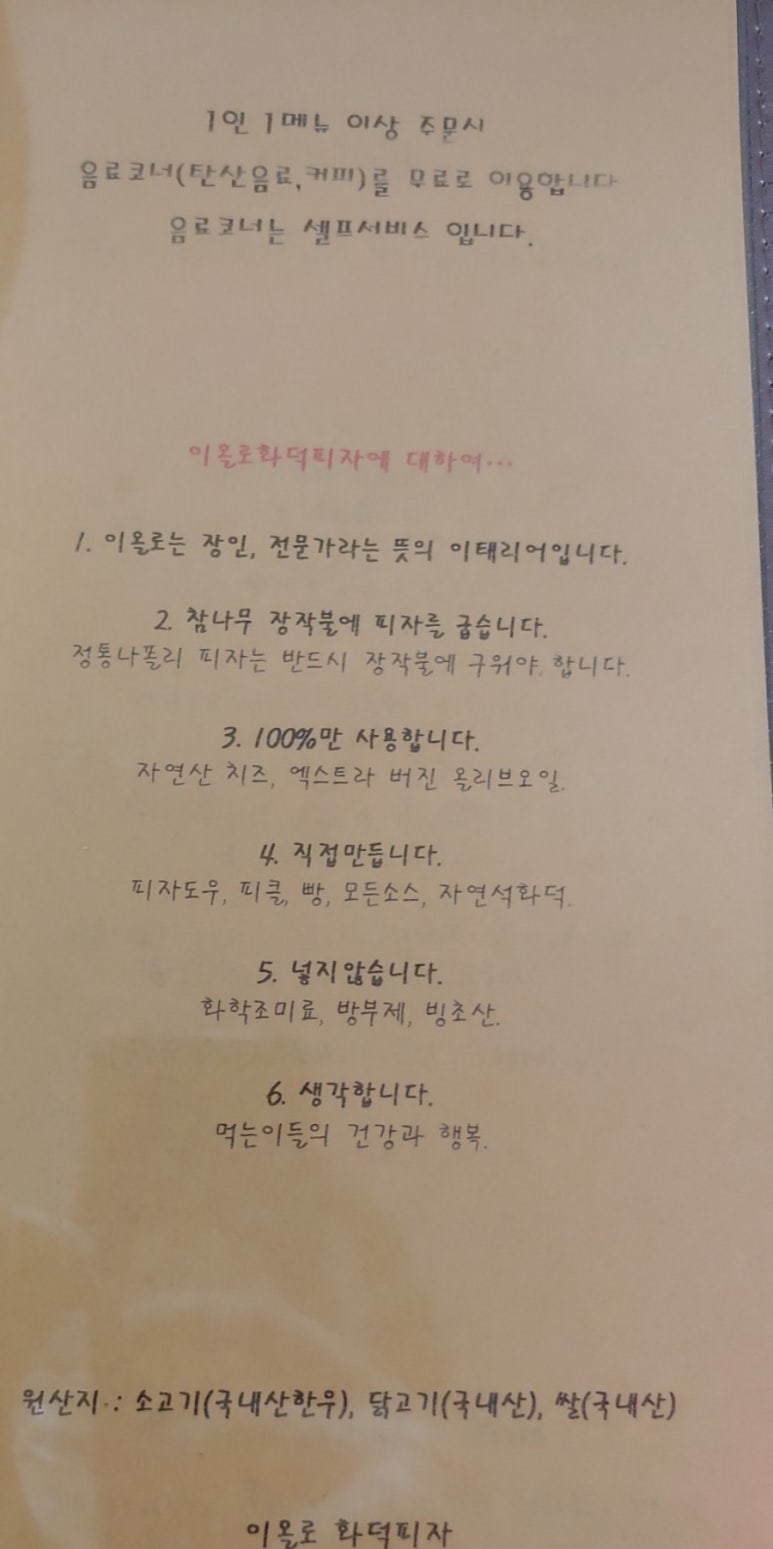 1인 1메뉴 이상 주문시
음료코너(탄산음료,커피)를 무료로 이용합니다
음료코너는 셀프서비스 입니다.
이올로화덕피자에 대하여...
1. 이올로는 장인, 전문가라는 뜻의 이태리어입니다.
2. 참나무 장작불에 피자를 굽습니다.
정통나폴리 피자는 반드시 장작불에 구워야 합니다.
3. 100%만 사용합니다.
자연산 치즈, 엑스트라 버진 올리브오일.
4. 직접만듭니다.
피자도우, 피클, 빵, 모든소스, 자연석화덕.
5. 넣지않습니다.
화학조미료, 방부제, 빙초산.
6. 생각합니다.
먹는이들의 건강과 행복.
원산지 : 소고기(국내산한우), 닭고기(국내산), 쌀(국내산)
이올로 화덕피자